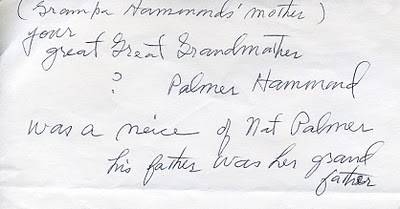 (Grampa Hammonds' mother)
your
great Great Grandmather
? Palmer Hammond
was a neice of Nat Palmer
his father was her grand
father